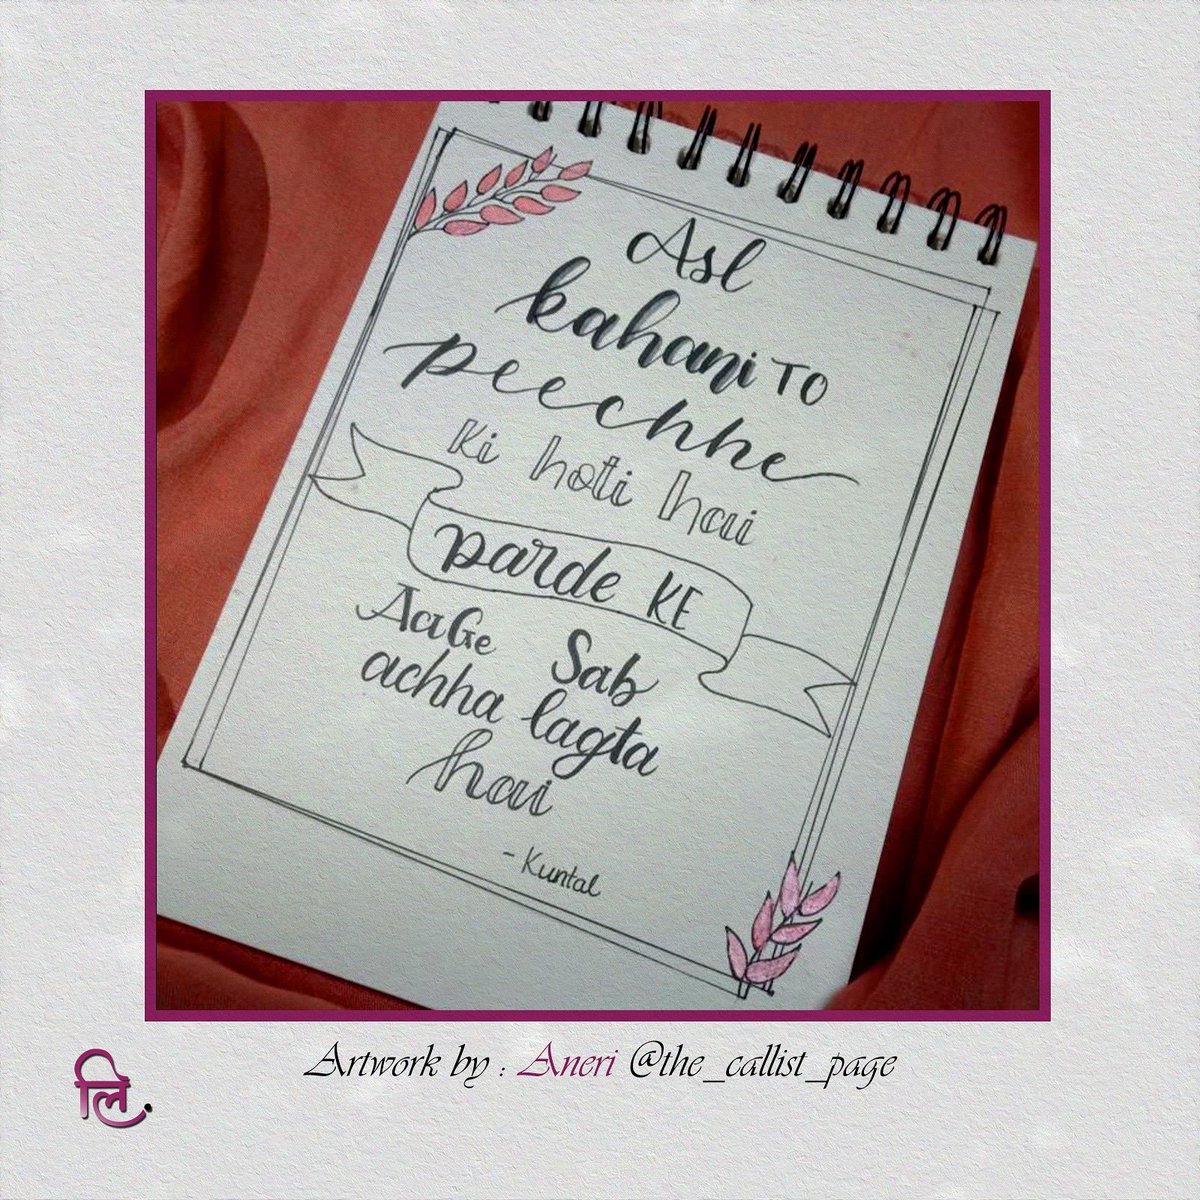 Asl
kahani TO
peechhe
Ki hoti hai
parde KE
AaGe Sab
achha lagta
hai
- Kuntal
Artwork by : Aneri @the_callist_page
लि.